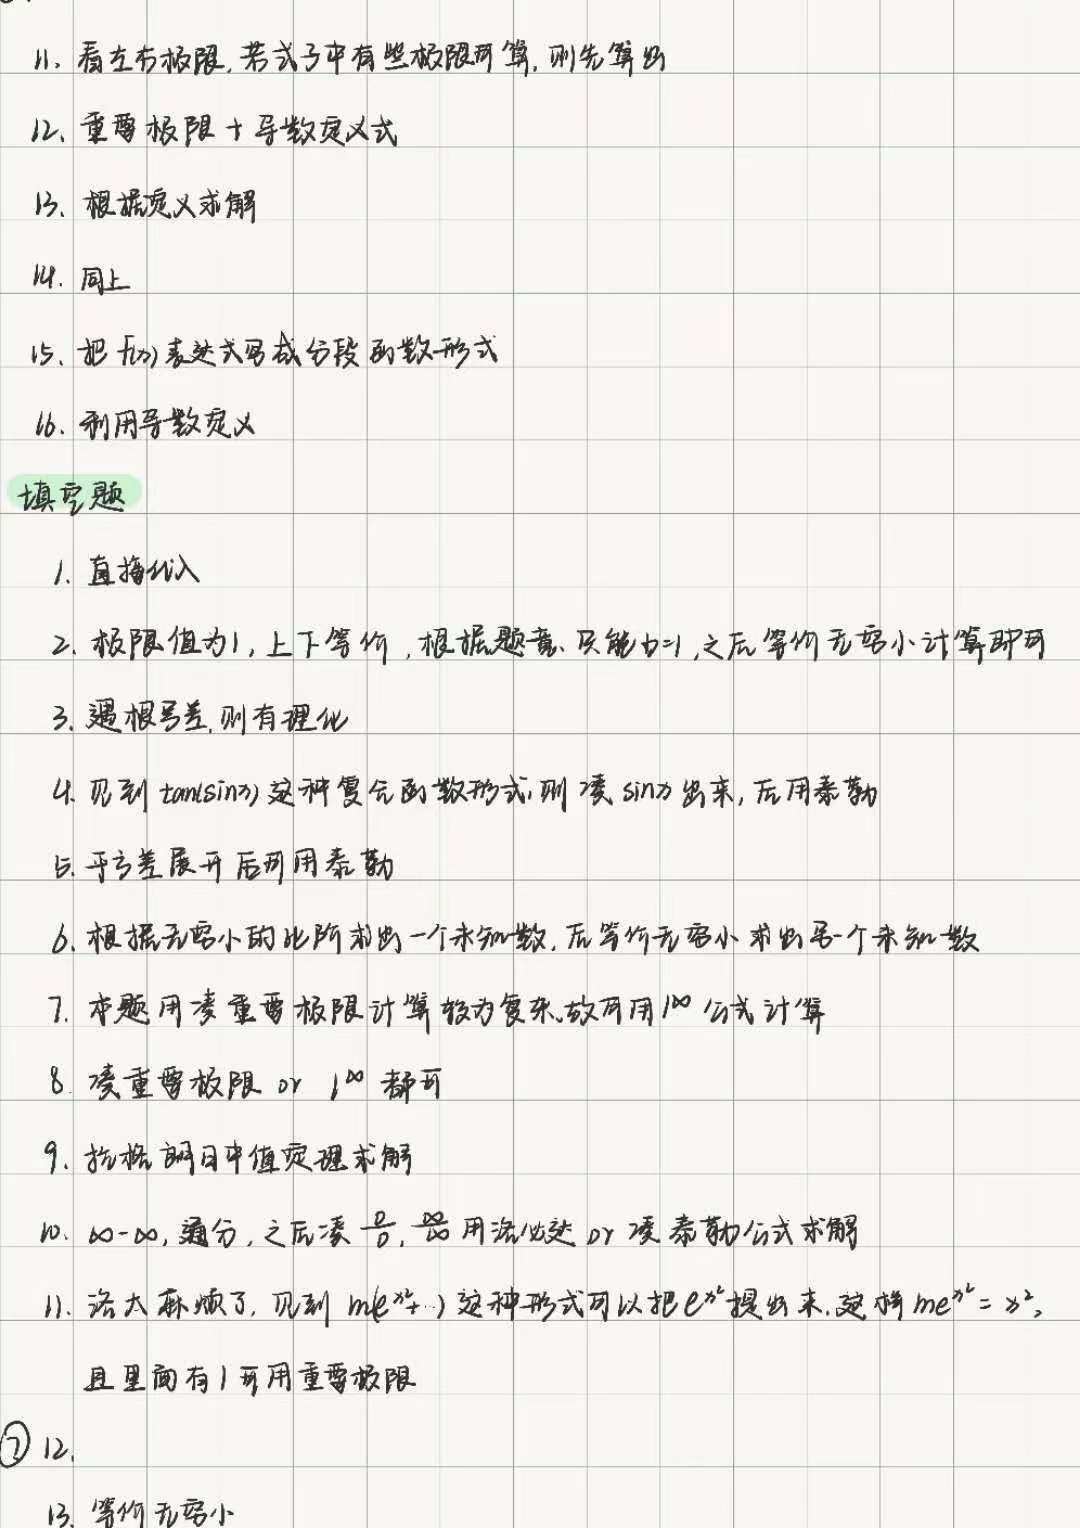 11、看左右极限,若式子中有些极限可算,则先算出
12、重要极限+导数定义式
13、根据定义求解
14、同上
15、把f(x)表达式写成分段函数形式
16、利用导数定义
填空题
1、直接代入
2、极限值为1,上下等价,根据题意、只能b=1,之后等价无穷小计算即可
3、遇根号差,则有理化
4、见到tan(sinx)这种复合函数形式,则凑sinx出来,后用泰勒
5、平方差展开后可用泰勒
6、根据无穷小的比阶求出一个未知数,后等价无穷小求出另一个未知数
7、本题用凑重要极限计算较为复杂,故可用1^∞公式计算
8、凑重要极限 or 1^∞ 都可
9、拉格朗日中值定理求解
10、∞-∞,通分,之后凑 0/0, ∞/∞ 用洛必达 or 凑泰勒公式求解
11、洛太麻烦了,见到 ln(e^x²+…) 这种形式可以把e^x²提出来,这样lne^x²=x²,
且里面有1可用重要极限
? 12、
13、等价无穷小